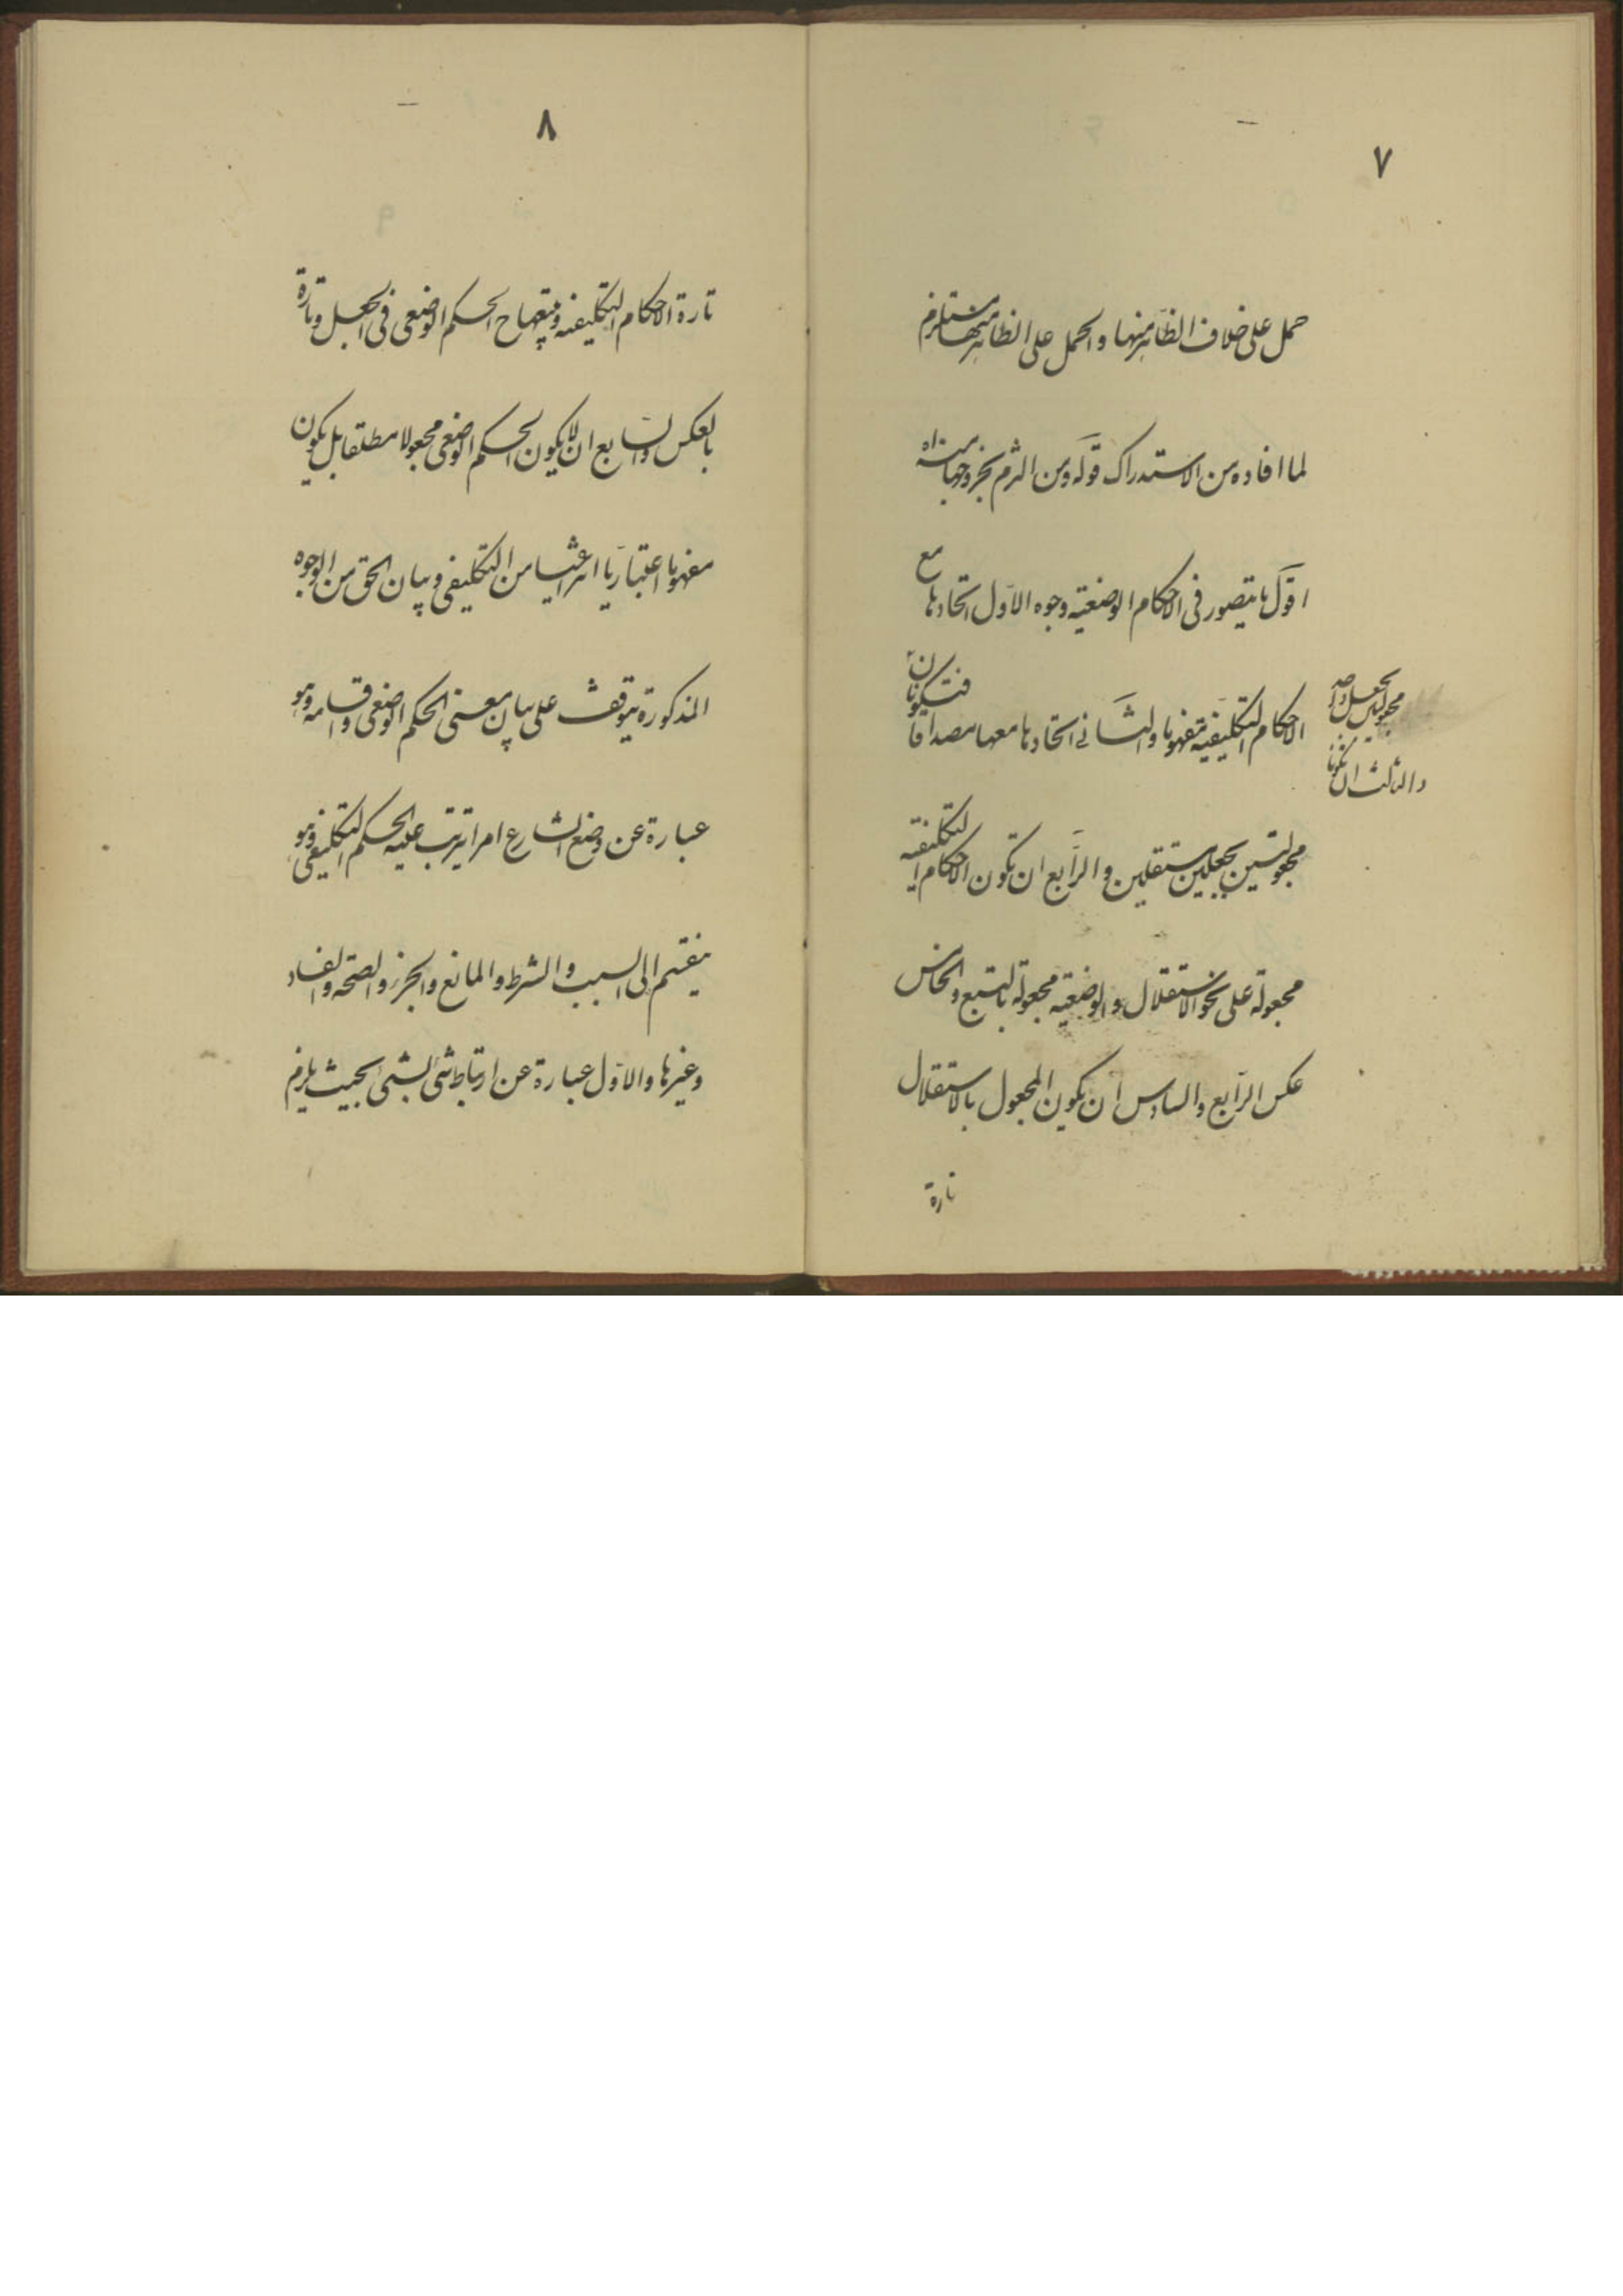 ٧
حمل على خلاف الظاهر منها والحمل على الظاهر منها مستلزم
لما افاده من الاستدراك قوله ومن التزم بخروجها
اقول ما يتصور فى الاحكام الوضعية وجوه الاول اتحادها مع
الاحكام التكليفية مفهوما والثانى اتحادها معها مصداقا فتكونان
مجعولتين بجعل واحد
والثالث ان تكونا
مجعولتين بجعلين مستقلين والرابع ان تكون الاحكام التكليفية
مجعولة على نحو الاستقلال والوضعية مجعولة بالتبع والخامس
عكس الرابع والسادس ان يكون المجعول بالاستقلال
تارة
٨
تارة الاحكام التكليفية ويتبعها ح الحكم الوضعى فى الجعل وتارة
بالعكس والسابع ان لا يكون الحكم الوضعى مجعولا مطلقا بل يكون
مفهوما اعتباريا انتزاعيا من التكليفى وبيان الحق من الوجوه
المذكورة يتوقف على بيان معنى الحكم الوضعى واقسامه وهو
عبارة عن وضع الشارع امرا يترتب عليه الحكم التكليفى وهو
ينقسم الى السبب والشرط والمانع والجزء والصحة والفساد
وغيرها والاول عبارة عن ارتباط شئ بشئ بحيث يلزم